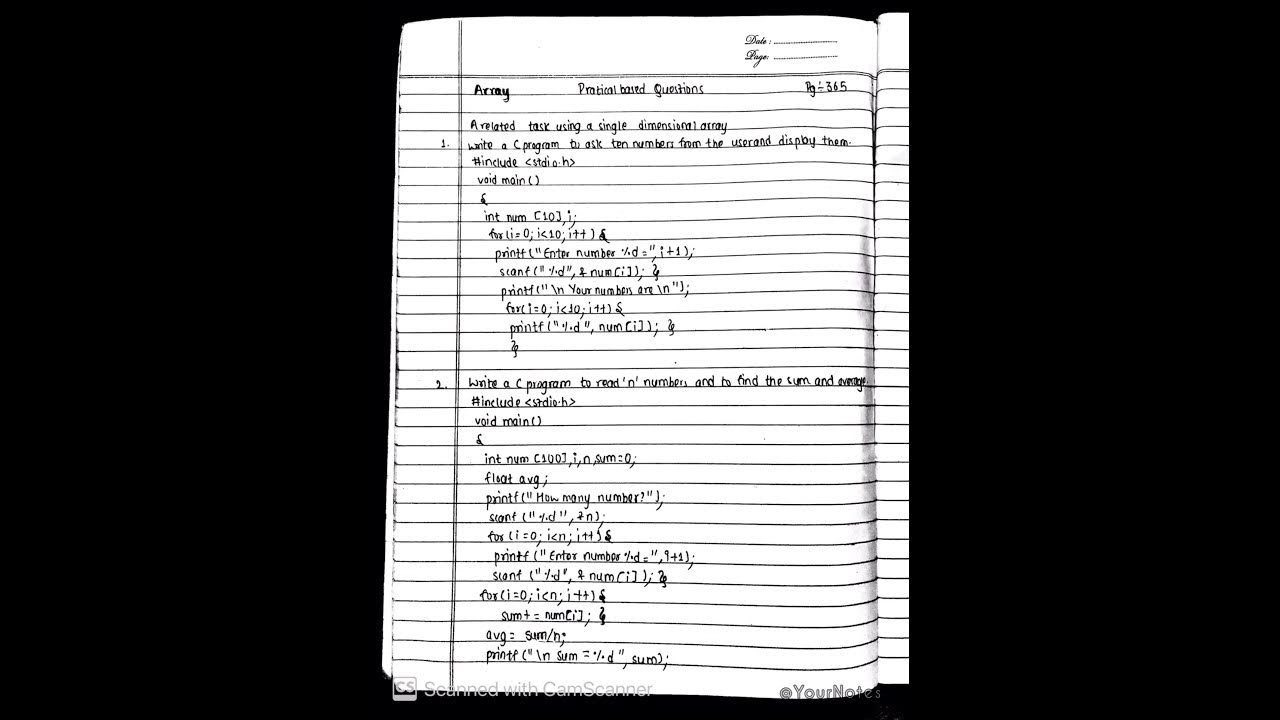 Date :
Page:
Array Pratical based Questions Pg÷365
A related task using a single dimensional array
1. Write a C program to ask ten numbers from the user and display them.
#include <stdio.h>
void main()
{
int num [10], i;
for(i=0; i<10; i++) {
printf("Enter number %d =", i+1);
scanf("%d", & num[i]); }
printf("\n Your numbers are \n");
for(i=0; i<10; i++) {
printf("%d", num[i]); }
}
2. Write a C program to read 'n' numbers and to find the sum and average.
#include <stdio.h>
void main()
{
int num [100], i, n, sum=0;
float avg;
printf("How many number?");
scanf ("%d", &n);
for (i=0; i<n; i++) {
printf ("Enter number %d =", i+1);
scanf ("%d", & num[i]); }
for(i=0; i<n; i++) {
sum+= num[i]; }
avg= sum/n;
printf("\n sum = %d", sum);
CS Scanned with CamScanner
@YourNotes